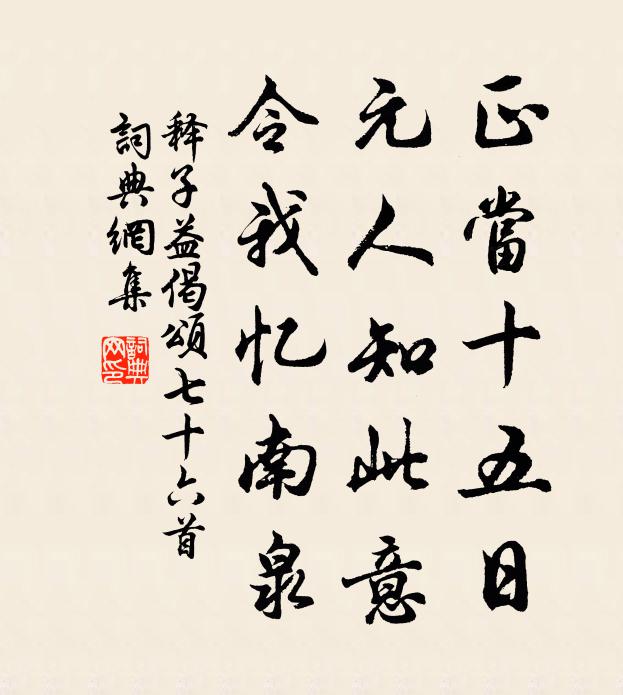 正當十五日
元人知此意
令我忆南泉
释子益偈頌七十六首
詞典網集
詞典网印